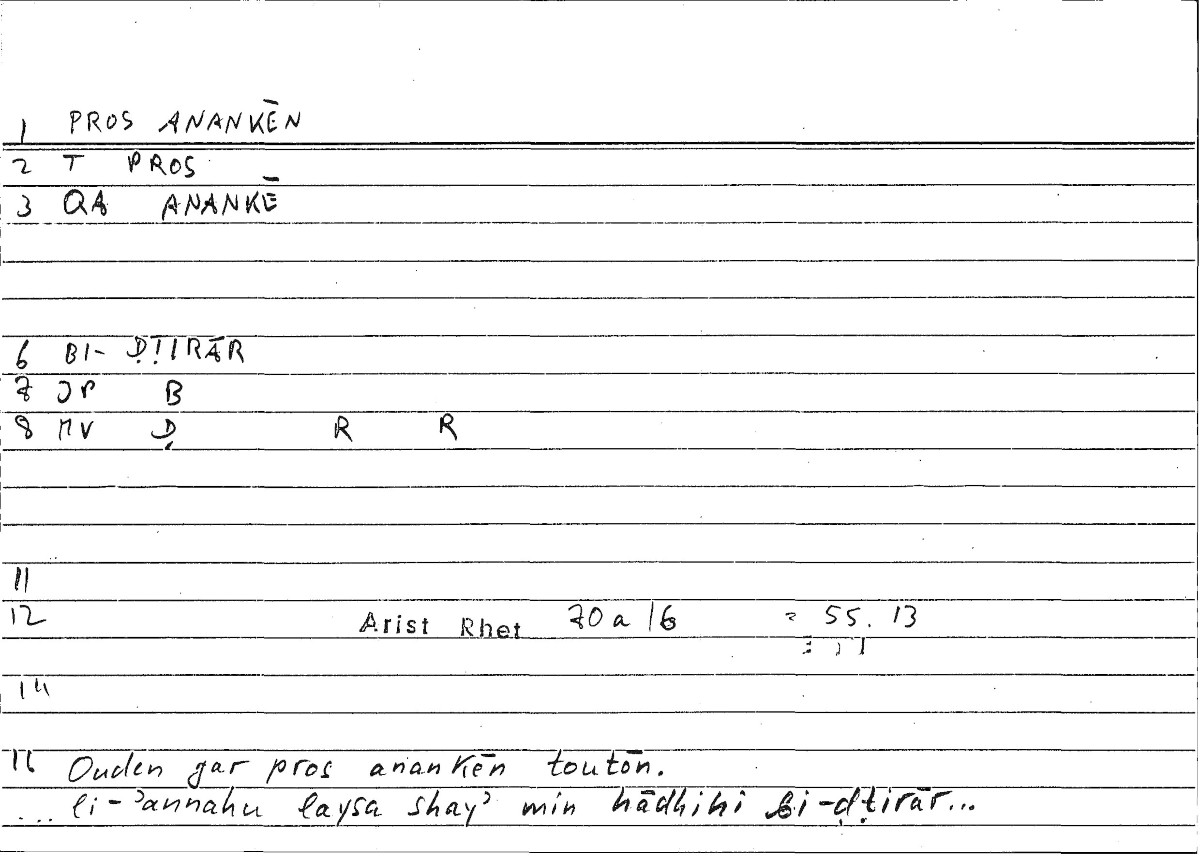 1 PROS ANANKĒN
2 T PROS
3 QA ANANKĒ
6 BI- ḌṬIRĀR
7 JP B
8 MV Ḍ R R
11
12 Arist Rhet 70a16 = 55.13
14
16 Ouden gar pros anankēn toutōn.
... li-ʾannahu laysa shayʾ min hādhihi bi-ḍṭirār...